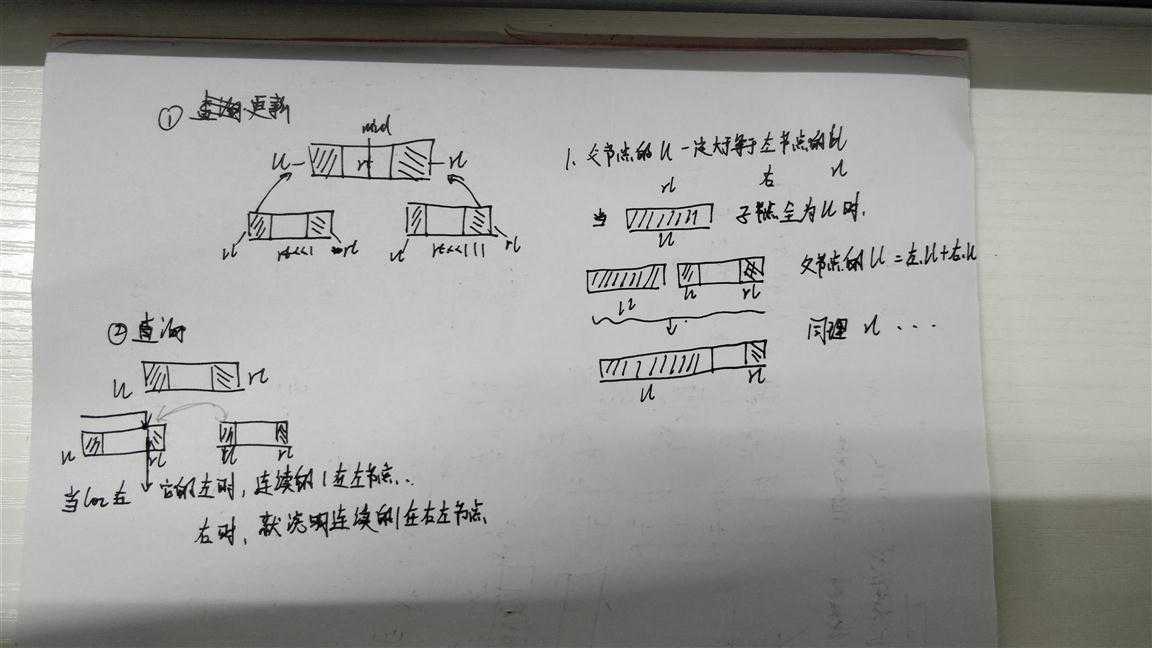 ① 更新
mid
ll rt rl
ll rt<<1 rl ll rt<<1|1 rl
② 查询
ll rl
ll rl ll rl
当loc在 它的左时，连续的1在左节点..
右时，就说明连续的1在右左节点
1. 父节点的ll一定大于等于左节点的ll
rl 右 rl
当 子节点全为ll时.
ll
父节点的ll=左.ll+右.ll
ll ll rl
同理 rl ...
ll rl